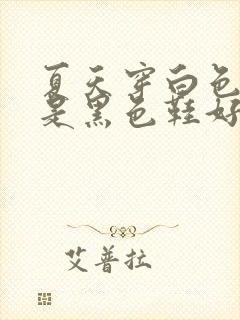 夏天穿白色
是黑色鞋好
艾普拉